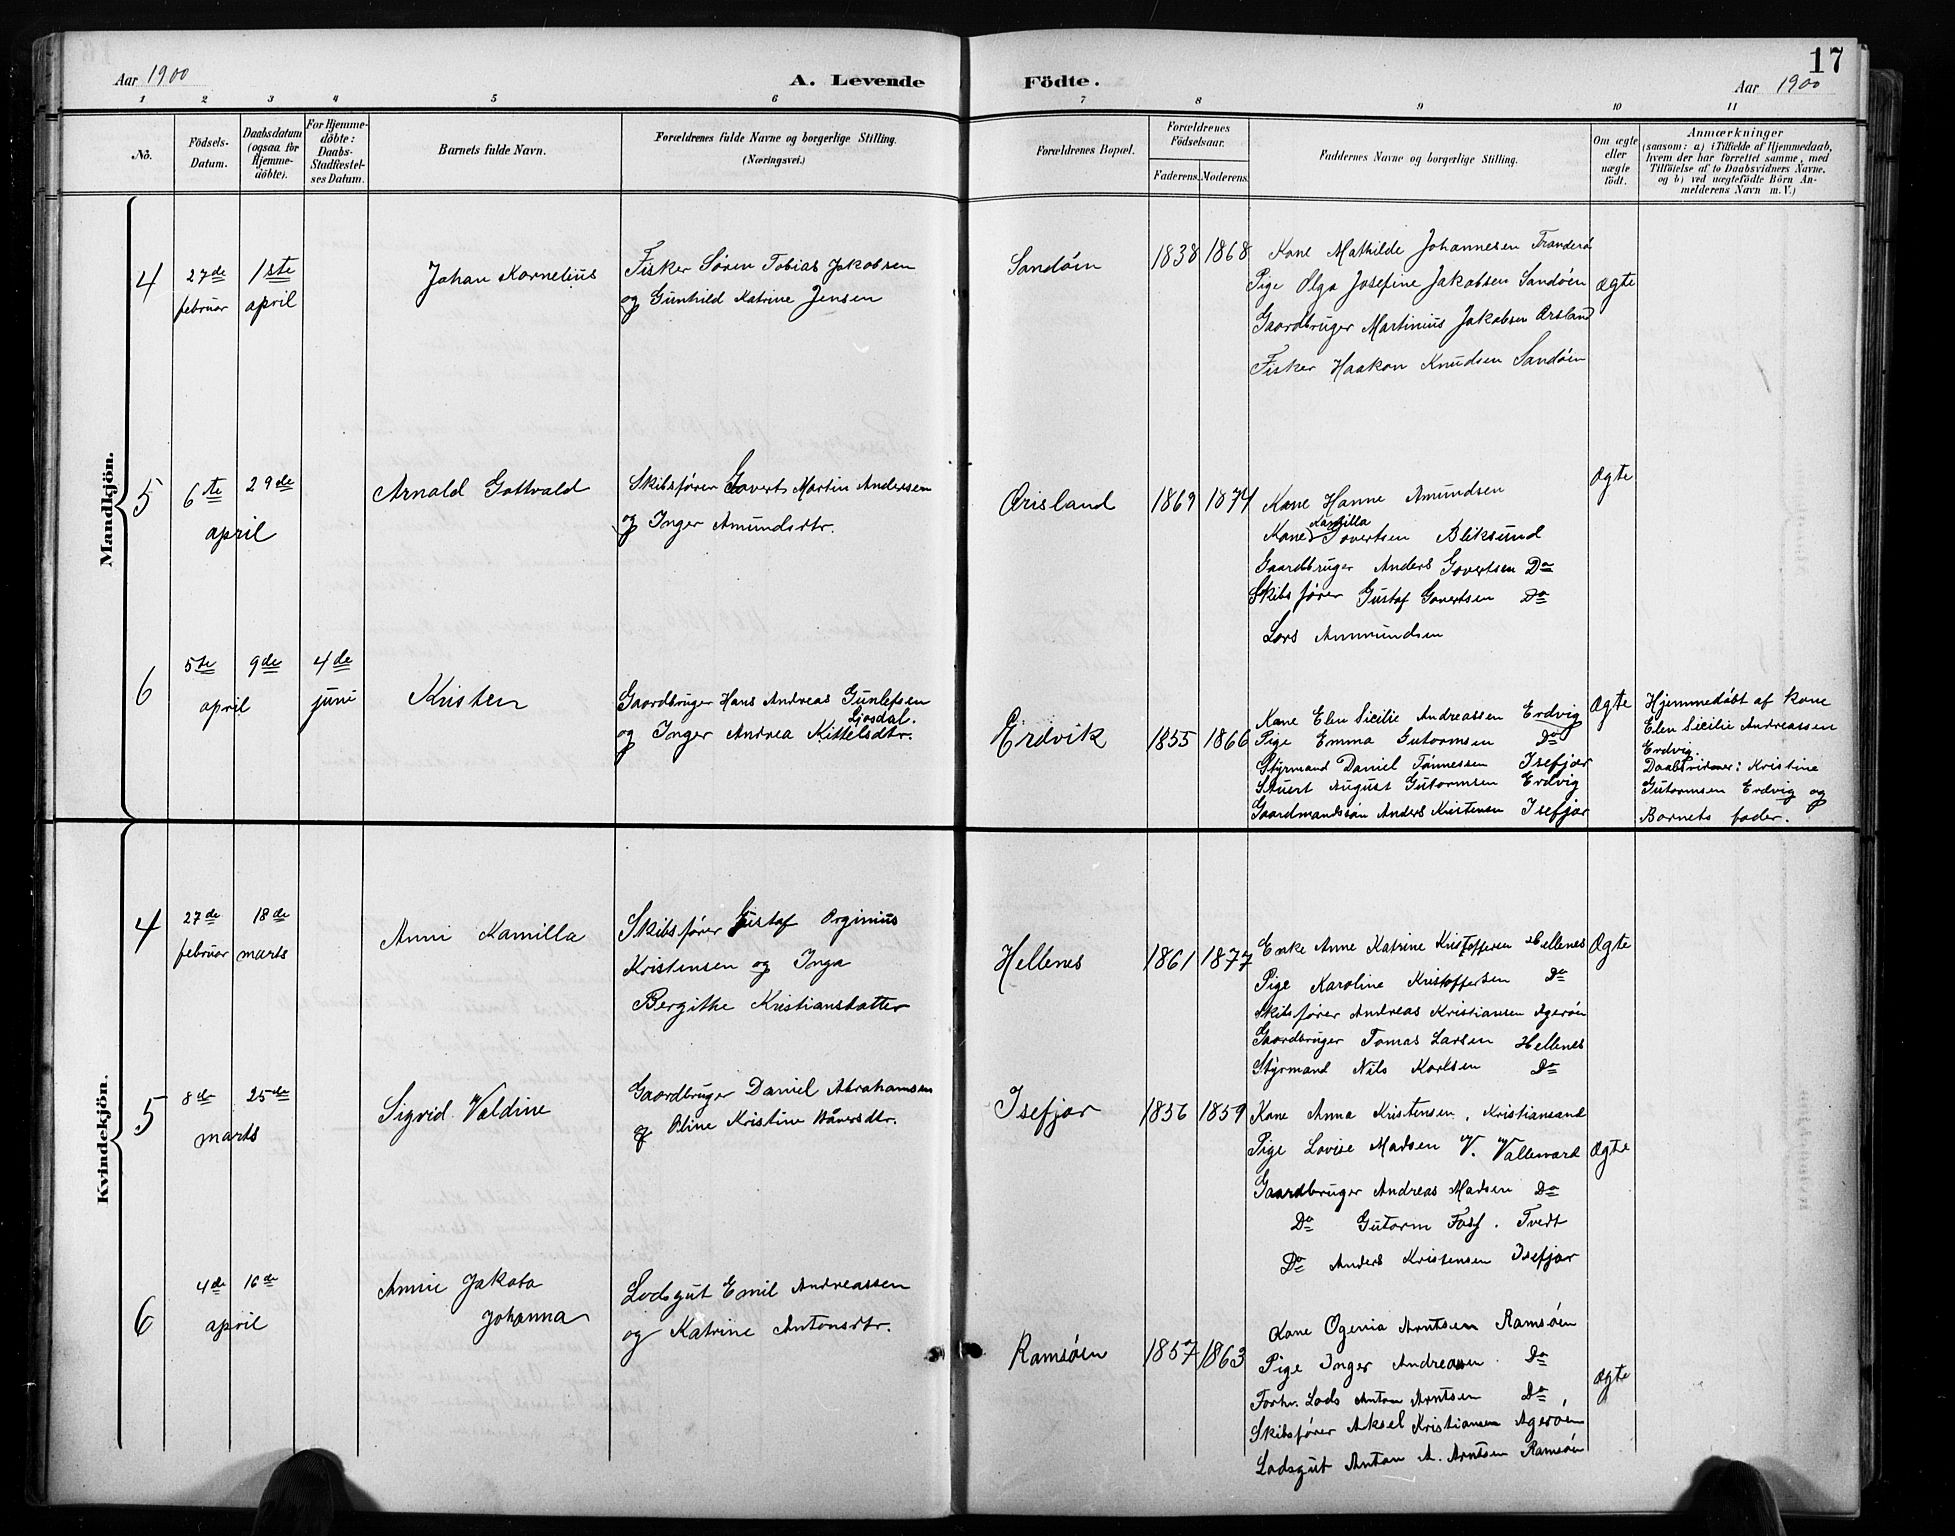 Aar 1900
A. Levende
Födte.
17
Aar 1900
1 2 3 4 5 6 7 8 9 10 11
No.
Födsels-Datum.
Daabsdatum (ogsaa for Hjemme-döbte).
For Hjemme-döbte: Daabs-Stadfæstel-ses Datum.
Barnets fulde Navn.
Forældrenes fulde Navne og borgerlige Stilling.
(Næringsvei.)
Forældrenes Bopæl.
Forældrenes Födselsaar.
Faderens. Moderens.
Faddernes Navne og borgerlige Stilling.
Om ægte eller uægte födt.
Anmærkninger
(saasom: a) i Tilfælde af Hjemmedaab,
hvem der har forrettet samme, med
Tilföielse af to Daabsvidners Navne,
og b) ved uægtefödte Börn An-
melderens Navn m. V.)
Mandkjön.
4
27de februar
1ste april
Johan Kornelius
Fisker Sören Tobias Jakobsen
og Gunhild Katrine Jensen
Sandöen
1838 1868
Kone Mathilde Johannesen
Pige Olga Josefine Jakobsen Sandöen
Gaardbruger Martinius Jakobsen
Fisker Haakon Knudsen Sandöen
Ægte
5
6te 29de
april
Arnald Gottvald
Skibsförer Govert Martin Andersen
og Inger Amundsdtr.
1869 1874
Kone Hanne Amundsen
Kone Govertsen Bliksund
Gaardbruger Anders Govertsen Do
Skibsförer Gustaf Govertsen Do
Lars Ammundsen
Ægte
6
5te 9de
april
4de juni
Kristen
Gaardbruger Hans Andreas Gunlefsen
Ljosdal.
og Inger Andrea Kittelsdtr.
Erdvik
1855 1866
Kone Elen Sicilie Andreassen Erdvig
Pige Emma Gutormsen Do
Styrmand Daniel Tönnessen Isefjær
Stuert August Gutormsen Erdvig
Gaardmandssön Anders Kristensen Isefjær
Ægte
Hjemmedöbt af kone
Elen Sicilie Andreassen
Erdvig.
Daabsvidner: Kristine
Gutormsen Erdvig og
Barnets fader.
Kvindekjön.
4
27de februar
18de marts
Anni Kamilla
Skibsförer Gustaf Orginius
Kristensen og Inga
Bergithe Kristiansdatter
Hellenes
1861 1877
Enke Anne Katrine Kristoffersen Hellenes
Pige Karoline Kristoffersen Do
Skibsförer Andreas Kristiansen Ageröen
Gaardbruger Tomas Larsen Hellenes
Styrmand Nils Karlsen Do
Ægte
5
8de 25de
marts
Sigvid Valdine
Gaardbruger Daniel Abrahamsen
og Oline Kristine
Isefjær
1856 1859
Kone Anna Kristensen, Kristiansand
Pige Lovise Madsen V. Vallesværd
Gaardbruger Andreas Madsen Do
Do Gutorm Tvedt
Do Anders Kristensen Isefjær
Ægte
6
4de 16de
april
Annie Jakoba
Johanna
Lodsgut Emil Andreassen
og Katrine Antonsdtr.
Ramsöen
1857 1863
Kone Ogenia Arntsen Ramsöen
Pige Inger Andreassen Do
Forhv. Lods Anton Arntsen Do
Skibsförer Aksel Kristiansen Ageröen
Lodsgut Anton A. Arntsen Ramsöen
Ægte